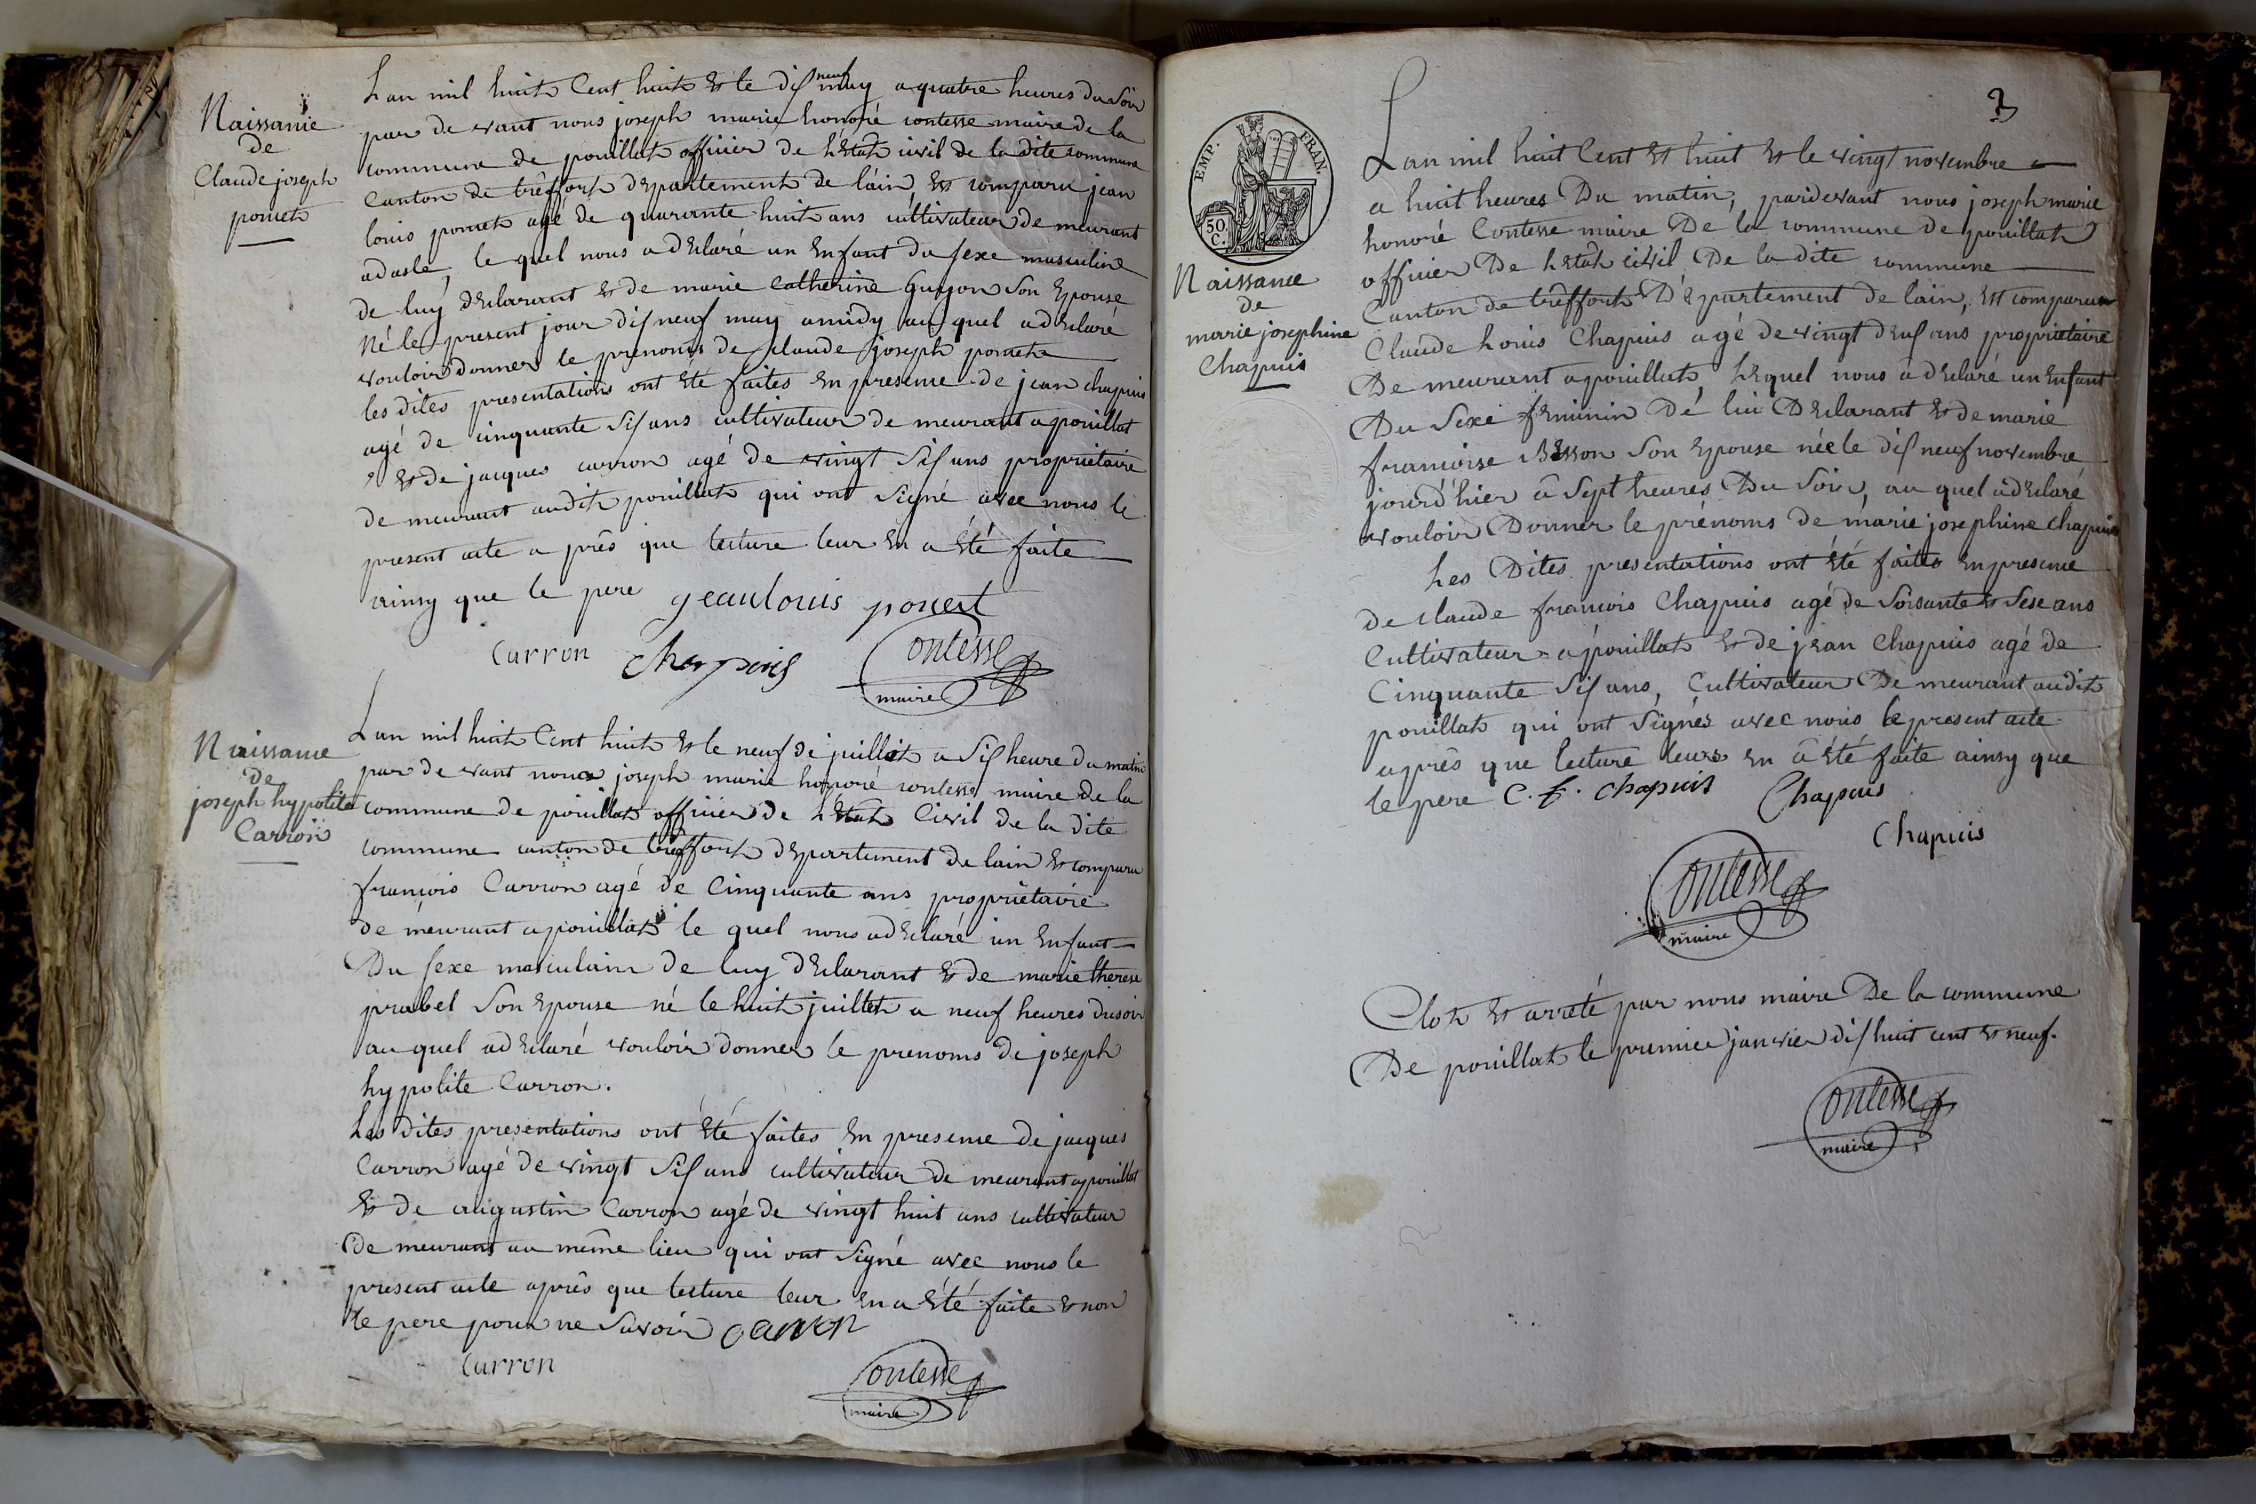 Naissance
de
Claude joseph
poncet
Lan mil huit Cent huit et le dix neuf may a quatre heures du Soir
par de vant nous joseph marie honoré contesse maire de la
commune de pouillat officier de l'Etat civil de la dite commune
Canton de treffort departement de l'ain, Est comparu jean
louis poncet agé de quarante huit ans cultivateur de meurant
, le quel nous a declaré un Enfant du sexe masculine
de luy declarant et de marie catherine guyon Son Epouse
Né le present jour dix neuf may a midy au quel a declaré
vouloir donner le prenoms de claude joseph poncet
les dites presentations ont été faites en presence de jean chapuis
agé de cinquante Six ans cultivateur de meurant a pouillat
et de jacques carron agé de vingt Six ans proprietaire
de meurant audit pouillat qui ont signé avec nous le
present acte a près que lecture leur En a Eté faite
ainsy que le pere geanlouis poncet
Carron Chappuis Contesse
maire
Naissance
de
joseph hypolite
Carron
Lan mil huit Cent huit et le neuf de juillet a Six heure du matin
par de vant nous joseph marie honoré contesse maire de la
commune de pouillat officier de l'Etat Civil de la dite
commune canton de treffort departement de lain et comparu
françois Carron agé de Cinquante ans proprietaire
de meurant a pouillat le quel nous a declaré un Enfant
Du sexe masculain de luy declarant et de marie therese
prabel Son Epouse né le huit juillet a neuf heures du soir
au quel a declaré vouloir donner le prenoms de joseph
hypolite Carron.
Les dites presentations ont été faites En presence de jacques
Carron agé de vingt Six ans cultivateur de meurant a pouillat
Et de augustin Carron agé de vingt huit ans cultivateur
de meurant au même lieu qui ont signé avec nous le
present acte après que lecture leur en a Eté faite et non
le pere pour ne Savoir carron
Carron Contesse
maire
3
EMP. FRAN.
50.
C.
Naissance
de
marie josephine
Chapuis
Lan mil huit Cent et huit et le vingt novembre
a huit heures Du matin, pardevant nous joseph marie
honoré Contesse maire De la commune de pouillat
officier De l'Etat civil De la dite commune
Canton de treffort Département de lain, Est comparu
Claude Louis Chapuis agé de vingt deux ans proprietaire
De meurant a pouillat, Lequel nous a declaré un Enfant
Du Sexe feminin De lui Declarant et de marie
francoise Besson Son Epouse née le dix neuf novembre
jourd'hier à Sept heures Du Soir, au quel a declaré
vouloir Donner le prénoms de marie josephine chapuis
Les Dites presentations ont Eté faites en presence
de claude francois Chapuis agé de Soisante et Sese ans
Cultivateur a pouillat et de jean Chapuis agé de
Cinquante Six ans, Cultivateur De meurant audit
pouillat qui ont Signés avec nous le present acte
après que lecture leurs en a Eté faite ainsy que
le pere C. f. chapuis Chapuis
Chapuis
Contesse
maire
Clot et arreté par nous maire De la commune
De pouillat le premier janvier dix huit cent et neuf.
Contesse
maire